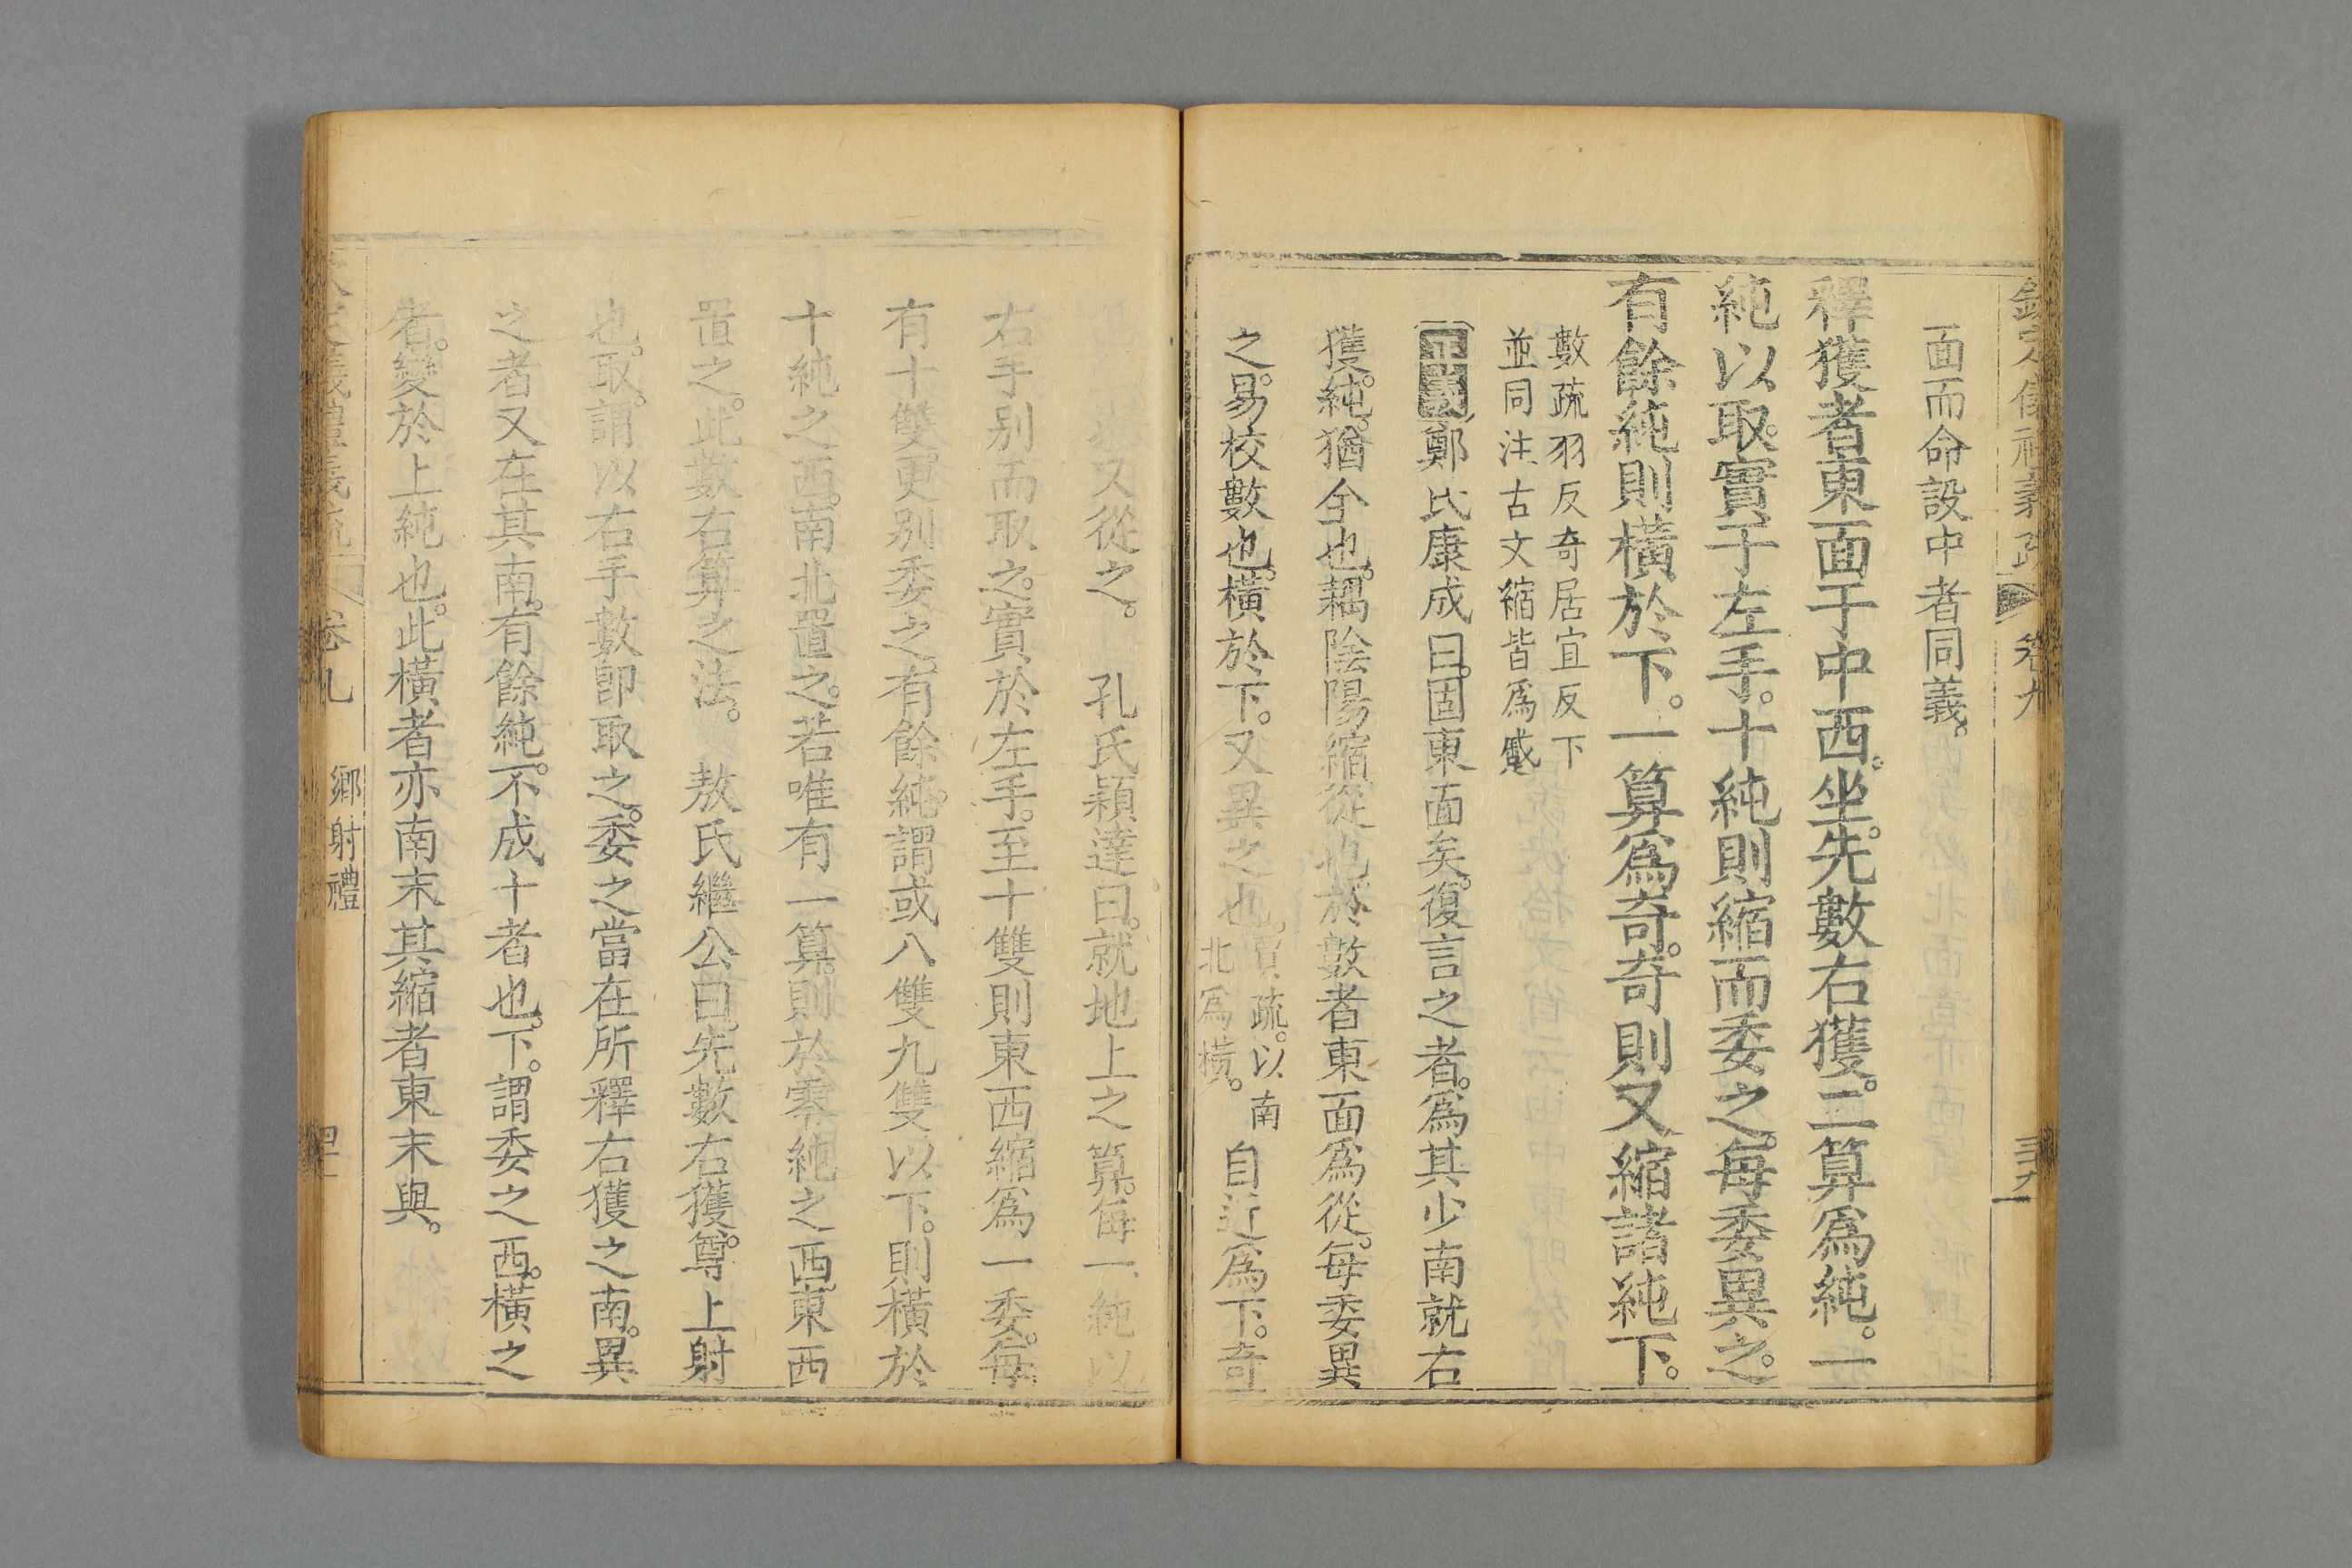 欽定儀禮義疏 卷九 三十九
面而命設中者同義。
釋獲者東面于中西。坐。先數右獲。二算爲純。一
純以取。實于左手。十純則縮而委之。每委異之。
有餘純則橫於下。一算爲奇。奇則又縮諸純下。
數疏羽反奇居宜反下
並同注古文縮皆爲蹙
正義鄭氏康成曰。固東面矣。復言之者。爲其少南就右
獲。純。猶全也。耦陰陽。縮。從也。於數者東面爲從。每委異
之。易校數也。橫於下。又異之也。賈疏。以南北爲橫。自近爲下。奇
又從之。 孔氏穎達曰。就地上之算。每一純以
右手别而取之。實於左手。至十雙則東西縮爲一委。每
有十雙。更别委之。有餘純。謂或八雙九雙以下。則橫於
十純之西。南北置之。若唯有一算。則於零純之西。東西
置之。此數右算之法。 敖氏繼公曰。先數右獲。尊上射
也。取。謂以右手數卽取之。委之當在所釋右獲之南。異
之者又在其南。有餘純。不成十者也。下。謂委之西。橫之
者。變於上純也。此橫者亦南末其縮者東末與。
義禮義疏 卷九 鄉射禮 四十